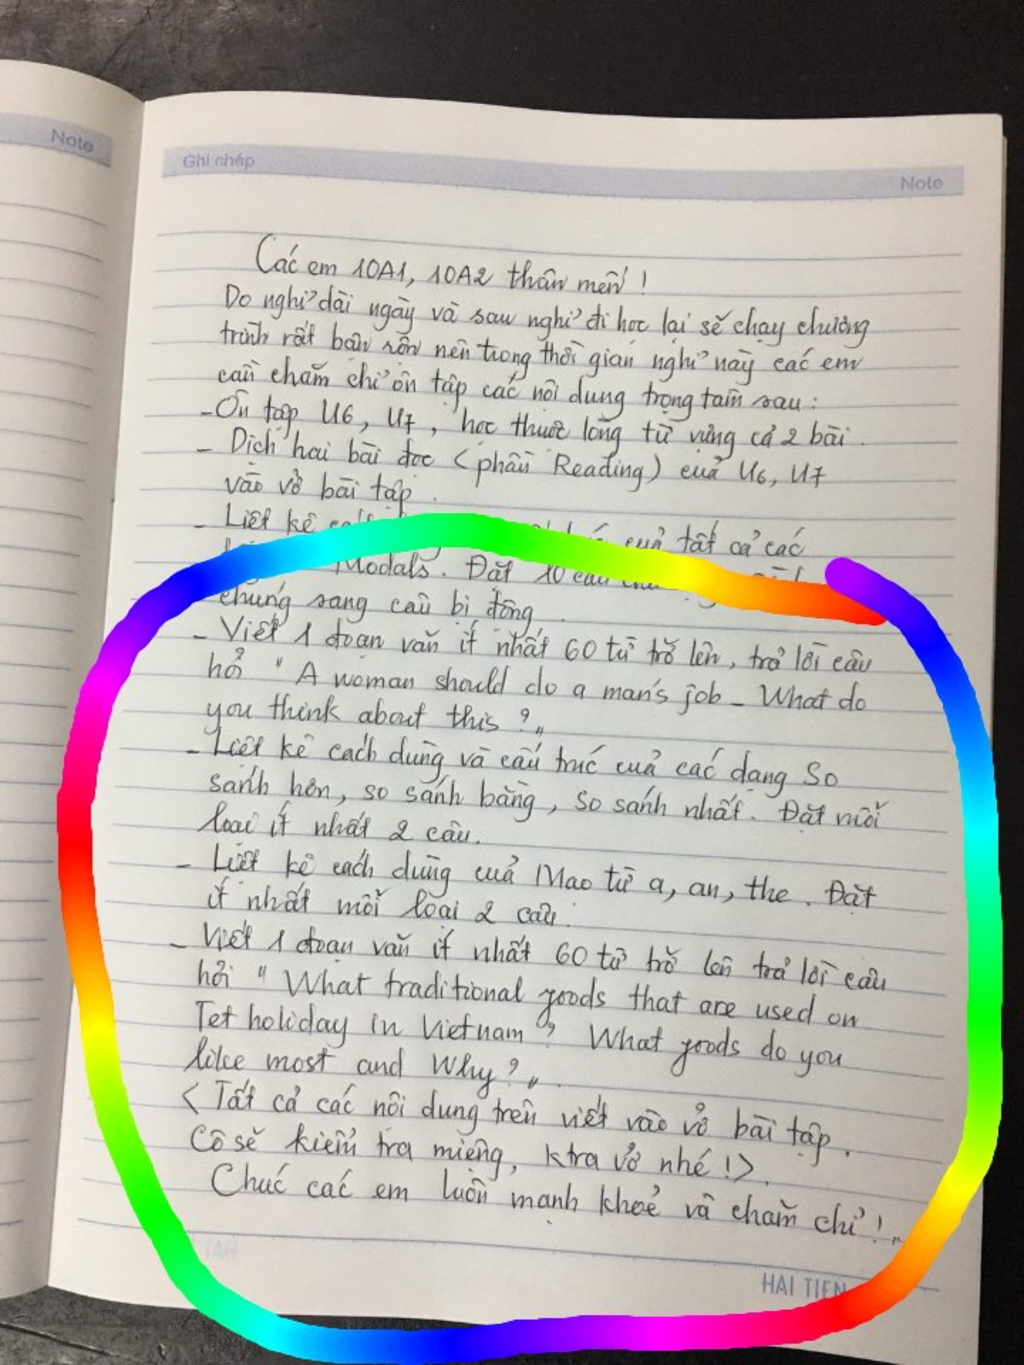 Note
Ghi chép
Note
Các em 10A1, 10A2 thân mến!
Do nghỉ dài ngày và sau nghỉ đi học lại sẽ chạy chương
trình rất bận rộn nên trong thời gian nghỉ này các em
cần chăm chỉ ôn tập các nội dung trọng tâm sau:
- Ôn tập U6, U7, học thuộc lòng từ vựng cả 2 bài.
- Dịch hai bài đọc (phần Reading) của U6, U7
vào vở bài tập.
- Liệt kê của tất cả các
Modals. Đặt 10 câu
chúng sang câu bị động.
- Viết 1 đoạn văn ít nhất 60 từ trở lên, trả lời câu
hỏi "A woman should do a man's job - What do
you think about this?"
- Liệt kê cách dùng và cấu trúc của các dạng So
sánh hơn, so sánh bằng, so sánh nhất. Đặt mỗi
loại ít nhất 2 câu.
- Liệt kê cách dùng của Mạo từ a, an, the. Đặt
ít nhất mỗi loại 2 câu.
- Viết 1 đoạn văn ít nhất 60 từ trở lên trả lời câu
hỏi "What traditional goods that are used on
Tet holiday in Vietnam? What goods do you
like most and Why?".
(Tất cả các nội dung trên viết vào vở bài tập.
Cô sẽ kiểm tra miệng, ktra vở nhé!).
Chúc các em luôn mạnh khoẻ và chăm chỉ!
HAI TIEN